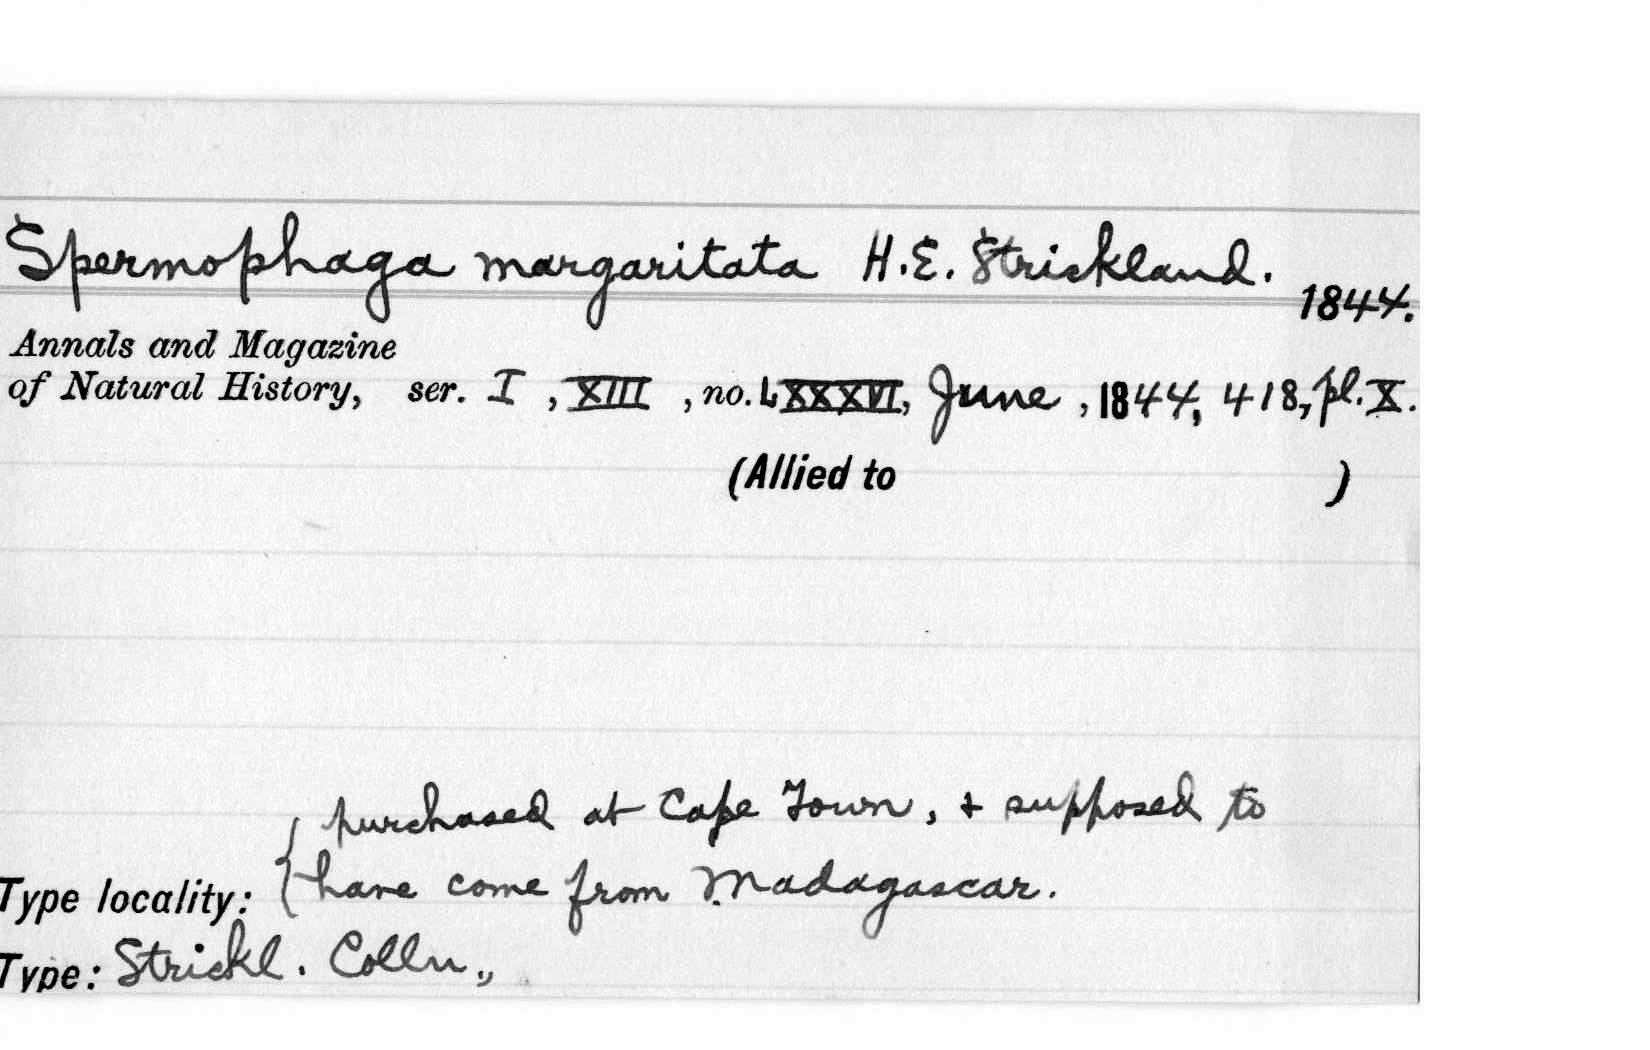 Spermophaga margaritata H.E. Strickland.
1844.
Annals and Magazine
of Natural History, ser. I, XIII, no. LXXXVI, June, 1844, 418, pl. X.
(Allied to )
purchased at Cape Town, & supposed to
Type locality: { have come from Madagascar.
Type: Strickl. Colln.,